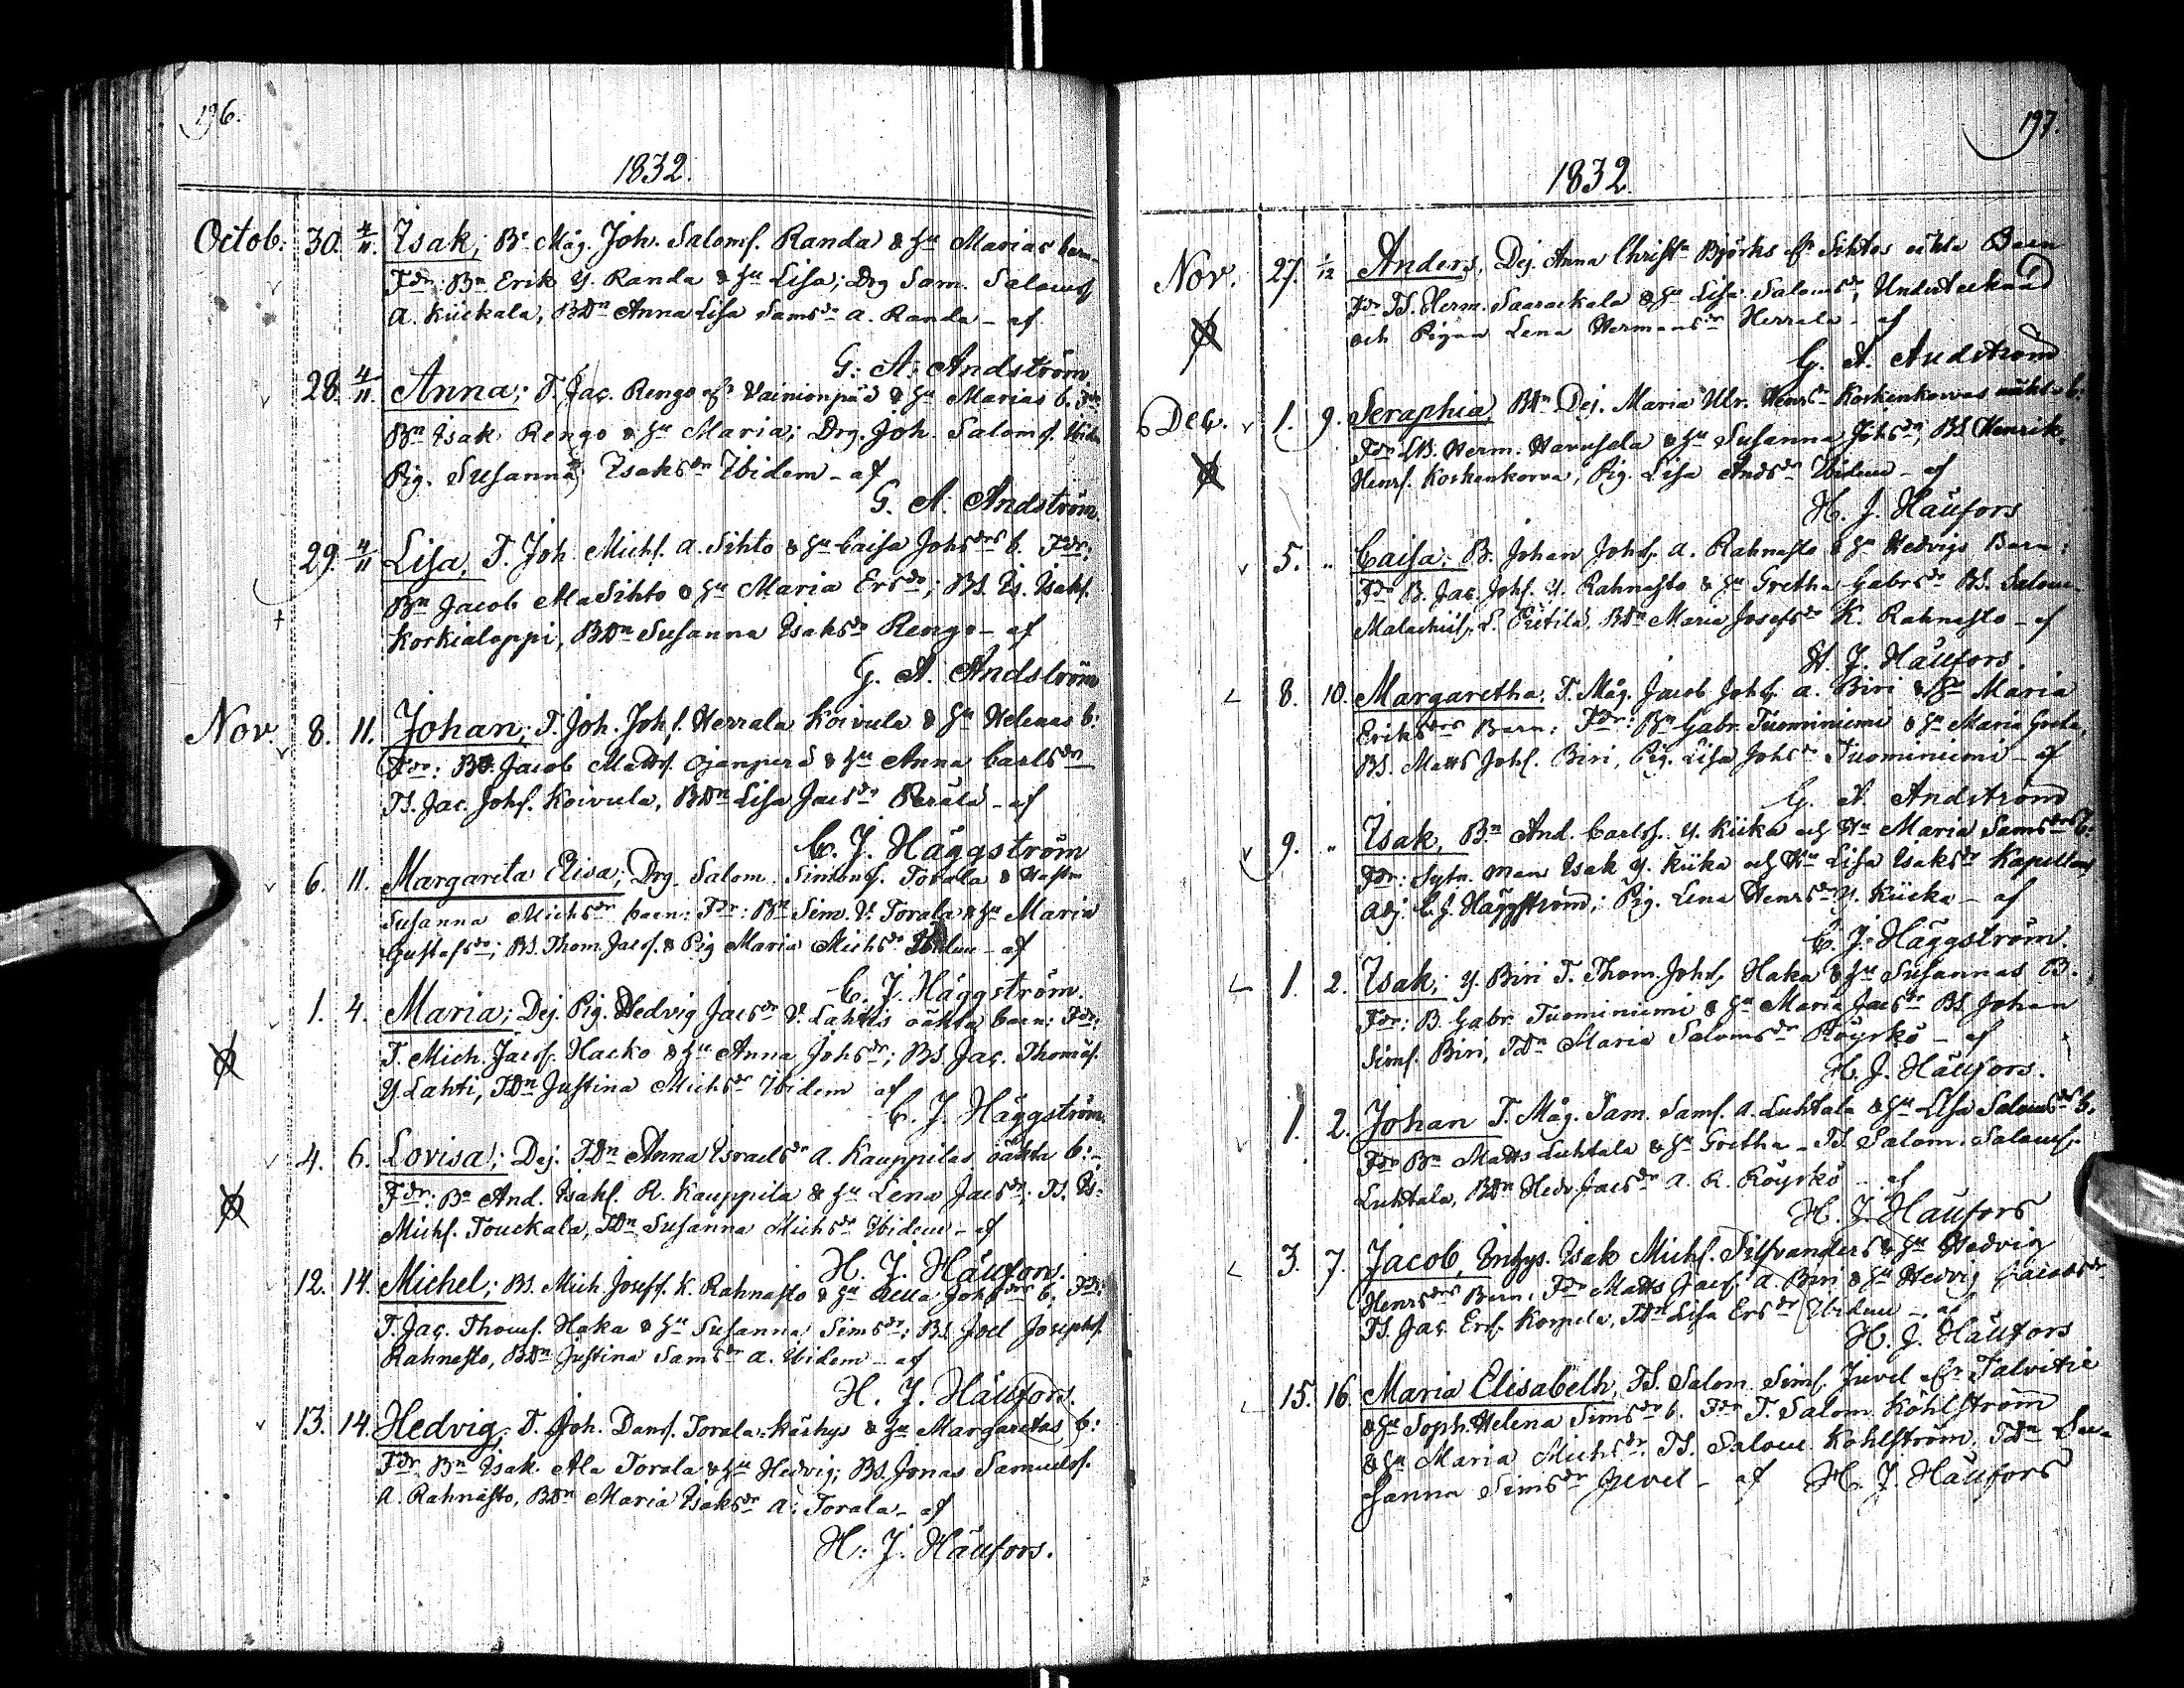 196.
1832.
Octob. 30. 4/11. Isak; Bd Måg. Joh. Salomss. Randa & Hu Marias barn
Fdr: Bn Erik Y. Randa & Hu Lisa; Drg Sam. Salomss
A. Kiickala, BDn Anna Lisa Samsdr A. Randa - af
G. A. Andström.
28. 4/11. Anna; T. Jac. Rengo af Vainionpää & Hu Marias b. Fdr
Bn Isak Rengo & Hu Maria; Drg. Joh. Salomss. Ibidm
Pig. Susanna Isaksdr Ibidem - af
G. A. Andström.
29. 4/11 Lisa, T. Joh. Michss. A. Sihto & Hu Caisa Johsdrs b. Fdr:
Bn Jacob Ala Sihto & Hu Maria Ersdr; BS. Is. Isakss.
Korkialoppi, BDn Susanna Isaksdr Rengo - af
G. A. Andström
Nov. 8. 11. Johan; T. Joh. Johss. Herrala Koivula & Hu Helenas b:
Fdr: BS. Jacob Mattss. Ojanperä & Hu Anna Carlsdr
TS. Jac. Johss. Koivula, BDn Lisa Jacsdr Perälä - af
C. J. Häggström
6. 11. Margareta Elisa; Drg. Salom. Simonss. Torala & Hustru
Susanna Michsdr barn: Fdr: Bn Sim. Y. Torala & Hu Maria
Gustafsdr; BS. Thom. Jacss. & Pig Maria Michsdr Ibidem - af
C. J. Häggström.
1. 4. Maria; Dej. Pig. Hedvig Jacsdr Y. Lahtis oäkta barn: Fdr:
T. Mich. Jacss. Hacko & Hu Anna Johsdr; BS. Jac. Thomass.
Y. Lahti, TDn Justina Michsdr Ibidem af
C. J. Häggström.
4. 6. Lovisa; Dej. TDn Anna Israelsdr A. Kauppilas oäkta b:
Fdr: Bn And. Isakss. R. Kauppila & Hu Lena Jacsdr; TS. Is.
Michss. Touckala, TDn Susanna Michsdr Ibidem - af
H. J. Häufors.
12. 14. Michel; BS. Mich. Josefss. K. Rahnasto & Hu Johsdrs b. Fdr:
T. Jac. Thomss. Haka & Hu Susanna Simsdr; BS Joel Josephss.
Rahnasto, BDn Justina Samsdr A. Ibidem - af
H. J. Häufors.
13. 14. Hedvig, T. Joh. Danss. Torala Kärhys & Hu Margaretas b:
Fdr Bn Isak Ala Torala & Hu Hedvig; BS. Jonas Samuelss.
A. Rahnasto, BDn Maria Isaksdr A. Torala - af
H. J. Häufors.
197.
1832.
Nov. 27. 1/12 Anders, Dej. Anna Christa Björks af Sihtos oäkta Barn
Fdr TS. Herm. Saarackala & Hu Lisa Salomsdr, Undertecknad
och Pigan Lena Hermansdr Herrala - af
G. A. Andström
Dec. 1. 9. Seraphia, BDn Dej. Maria Ulr. Henrsdr Koskenkorvas oäkta b.
Fdr LB. Herm. Harusela & Hu Susanna Johsdr, BS Henrik
Henrss. Koskenkorva, Pig. Lisa Andsdr Ibidem - af
H. J. Häufors
5. " Caisa; B. Johan Johss. A. Rahnasto & Hu Hedvigs Barn:
Fdr B. Jac. Johss. Y. Rahnasto & Hu Gretha Gabrsdr BS. Salom.
Malachiiss. L. Pritilä, BDn Maria Josefsdr K. Rahnasto - af
H. J. Häufors.
8. 10. Margaretha, T. Måg. Jacob Johss. A. Biri & Hu Maria
Eriksdrs Barn: Fdr: Bn Gabr. Tuominiemi & Hu Maria Greta,
BS. Matts Johss. Biri, Pig. Lisa Johsdr Tuominiemi - af
G. A. Andström
9. " Isak, Bn And. Carlss. Y. Kiika och Hu Maria Samsdrs b.
Fdr: Sytn. man Isak Y. Kiika och Hu Lisa Isaksdr Kapellans
Adj. C. J. Häggström; Pig. Lena Henrsdr Y. Kiicka - af
C. J. Häggström.
1. 2. Isak; Y. Biri T. Thom. Johss. Haka & Hu Susannas B.
Fdr: B. Gabr. Tuominiemi & Hu Maria Jacsdr BS Johan
Simss. Biri, TDn Maria Salomsdr Röyrkö - af
H. J. Häufors.
1. 2. Johan T. Måg. Sam. Samss. A. Luhtala & Hu Lisa Salomsdrs b.
Fdr Bn Matts Luhtala & Hu Gretha - TS. Salom. Salomss.
Luhtala, BDn Hedv. Jacsdr A. R. Röyrkö - af
H. J. Häufors
3. 7. Jacob, Inhys. Isak Michss. Silfvanders & Hu Hedvig
Henrsdrs Barn, Fdr Matts Jacss. A. Biri & Hu Hedvig Jacobsdr
TS. Jac. Erss. Korpela, TDn Lisa Ersdr Ibidem - af
H. J. Häufors
15. 16. Maria Elisabeth, TS. Salom. Simss. Juvel af Talvitie
& Hu Soph. Helena Simsdr b. Fdr T. Salom. Kohlström
& Hu Maria Michsdr. TS. Salom. Kohlström, TDn Su-
sanna Simsdr Juvel - af H. J. Häufors